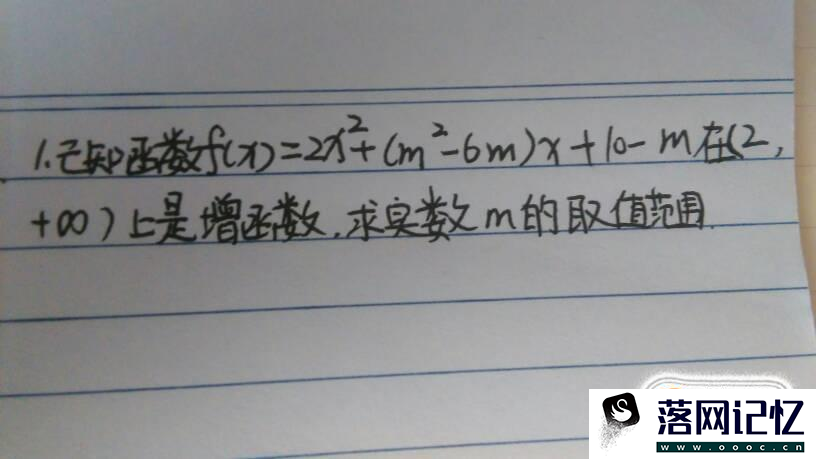 1.已知函数f(x)=2x²+(m²-6m)x+10-m在(2,
+∞)上是增函数,求实数m的取值范围.
落网记忆
www.oooc.cn